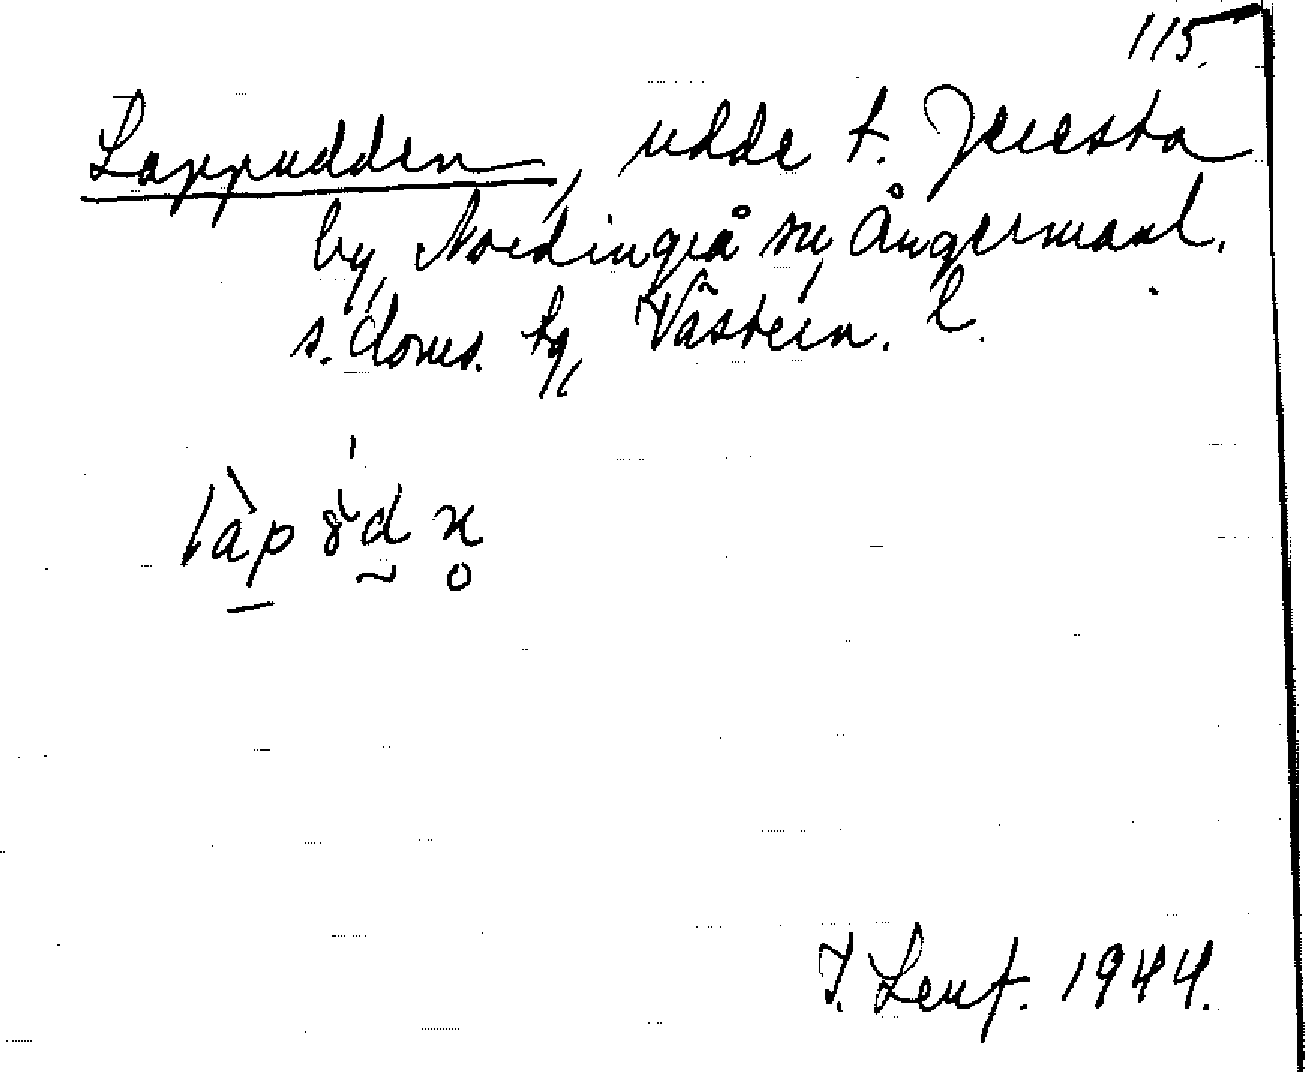 115.
Lappudden, udde t. Järesta
by, Nordingrå sn, Ångermanl.
s. doms. tg, Västern. l.
làp ud n
T. Leuf. 1944.